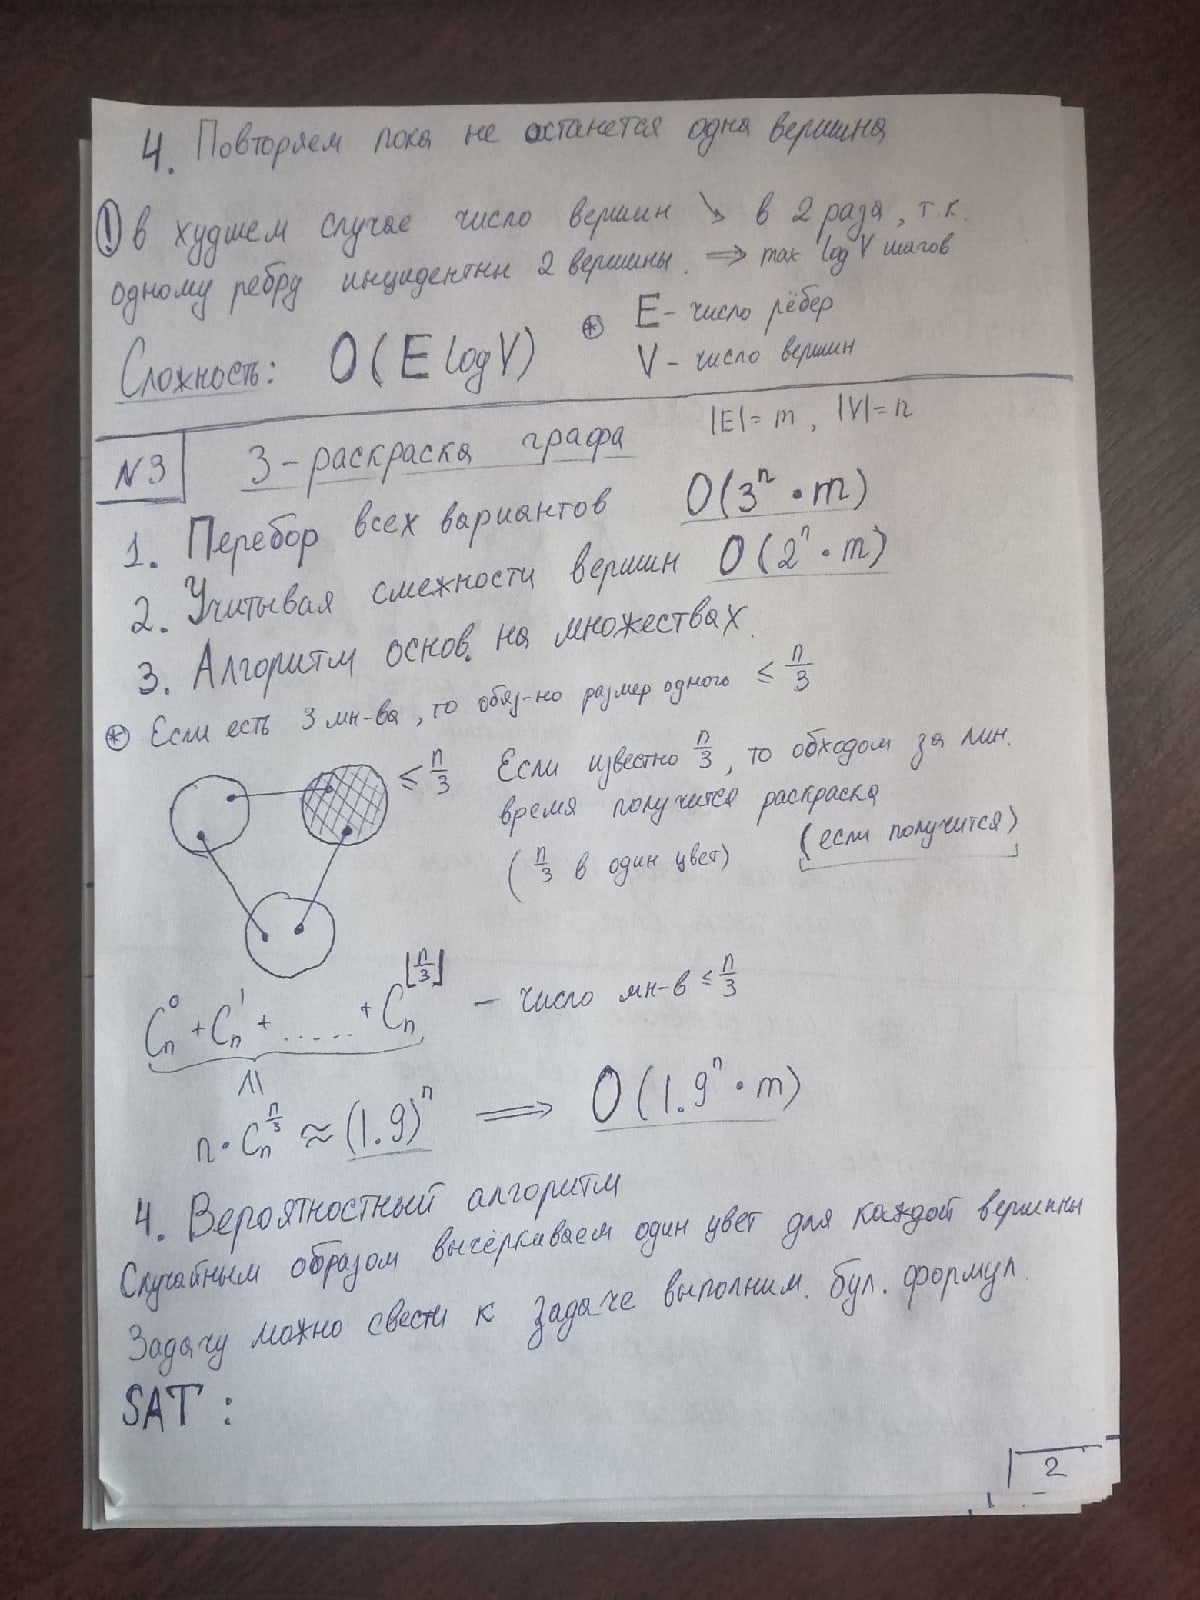 4. Повторяем пока не останется одна вершина
① В худшем случае число вершин ↘ в 2 раза, т.к.
одному ребру инцидентны 2 вершины. ⟹ max log V шагов
Сложность: O(E log V) ⊛ E - число рёбер
V - число вершин
N3 3-раскраска графа |E|=m, |V|=n
1. Перебор всех вариантов O(3ⁿ · m)
2. Учитывая смежности вершин O(2ⁿ · m)
3. Алгоритм основ. на множествах.
⊛ Если есть 3 мн-ва, то обяз-но размер одного ≤ n/3
≤ n/3 Если известно n/3, то обходом за лин.
время получится раскраска
(n/3 в один цвет) (если получится)
C_n^0 + C_n^1 + ...... + C_n^⌊n/3⌋ – число мн-в ≤ n/3
n · C_n^(n/3) ≈ (1.9)ⁿ ⟹ O(1.9ⁿ · m)
4. Вероятностный алгоритм
Случайным образом вычёркиваем один цвет для каждой вершины
Задачу можно свести к задаче выполним. бул. формул.
SAT:
2